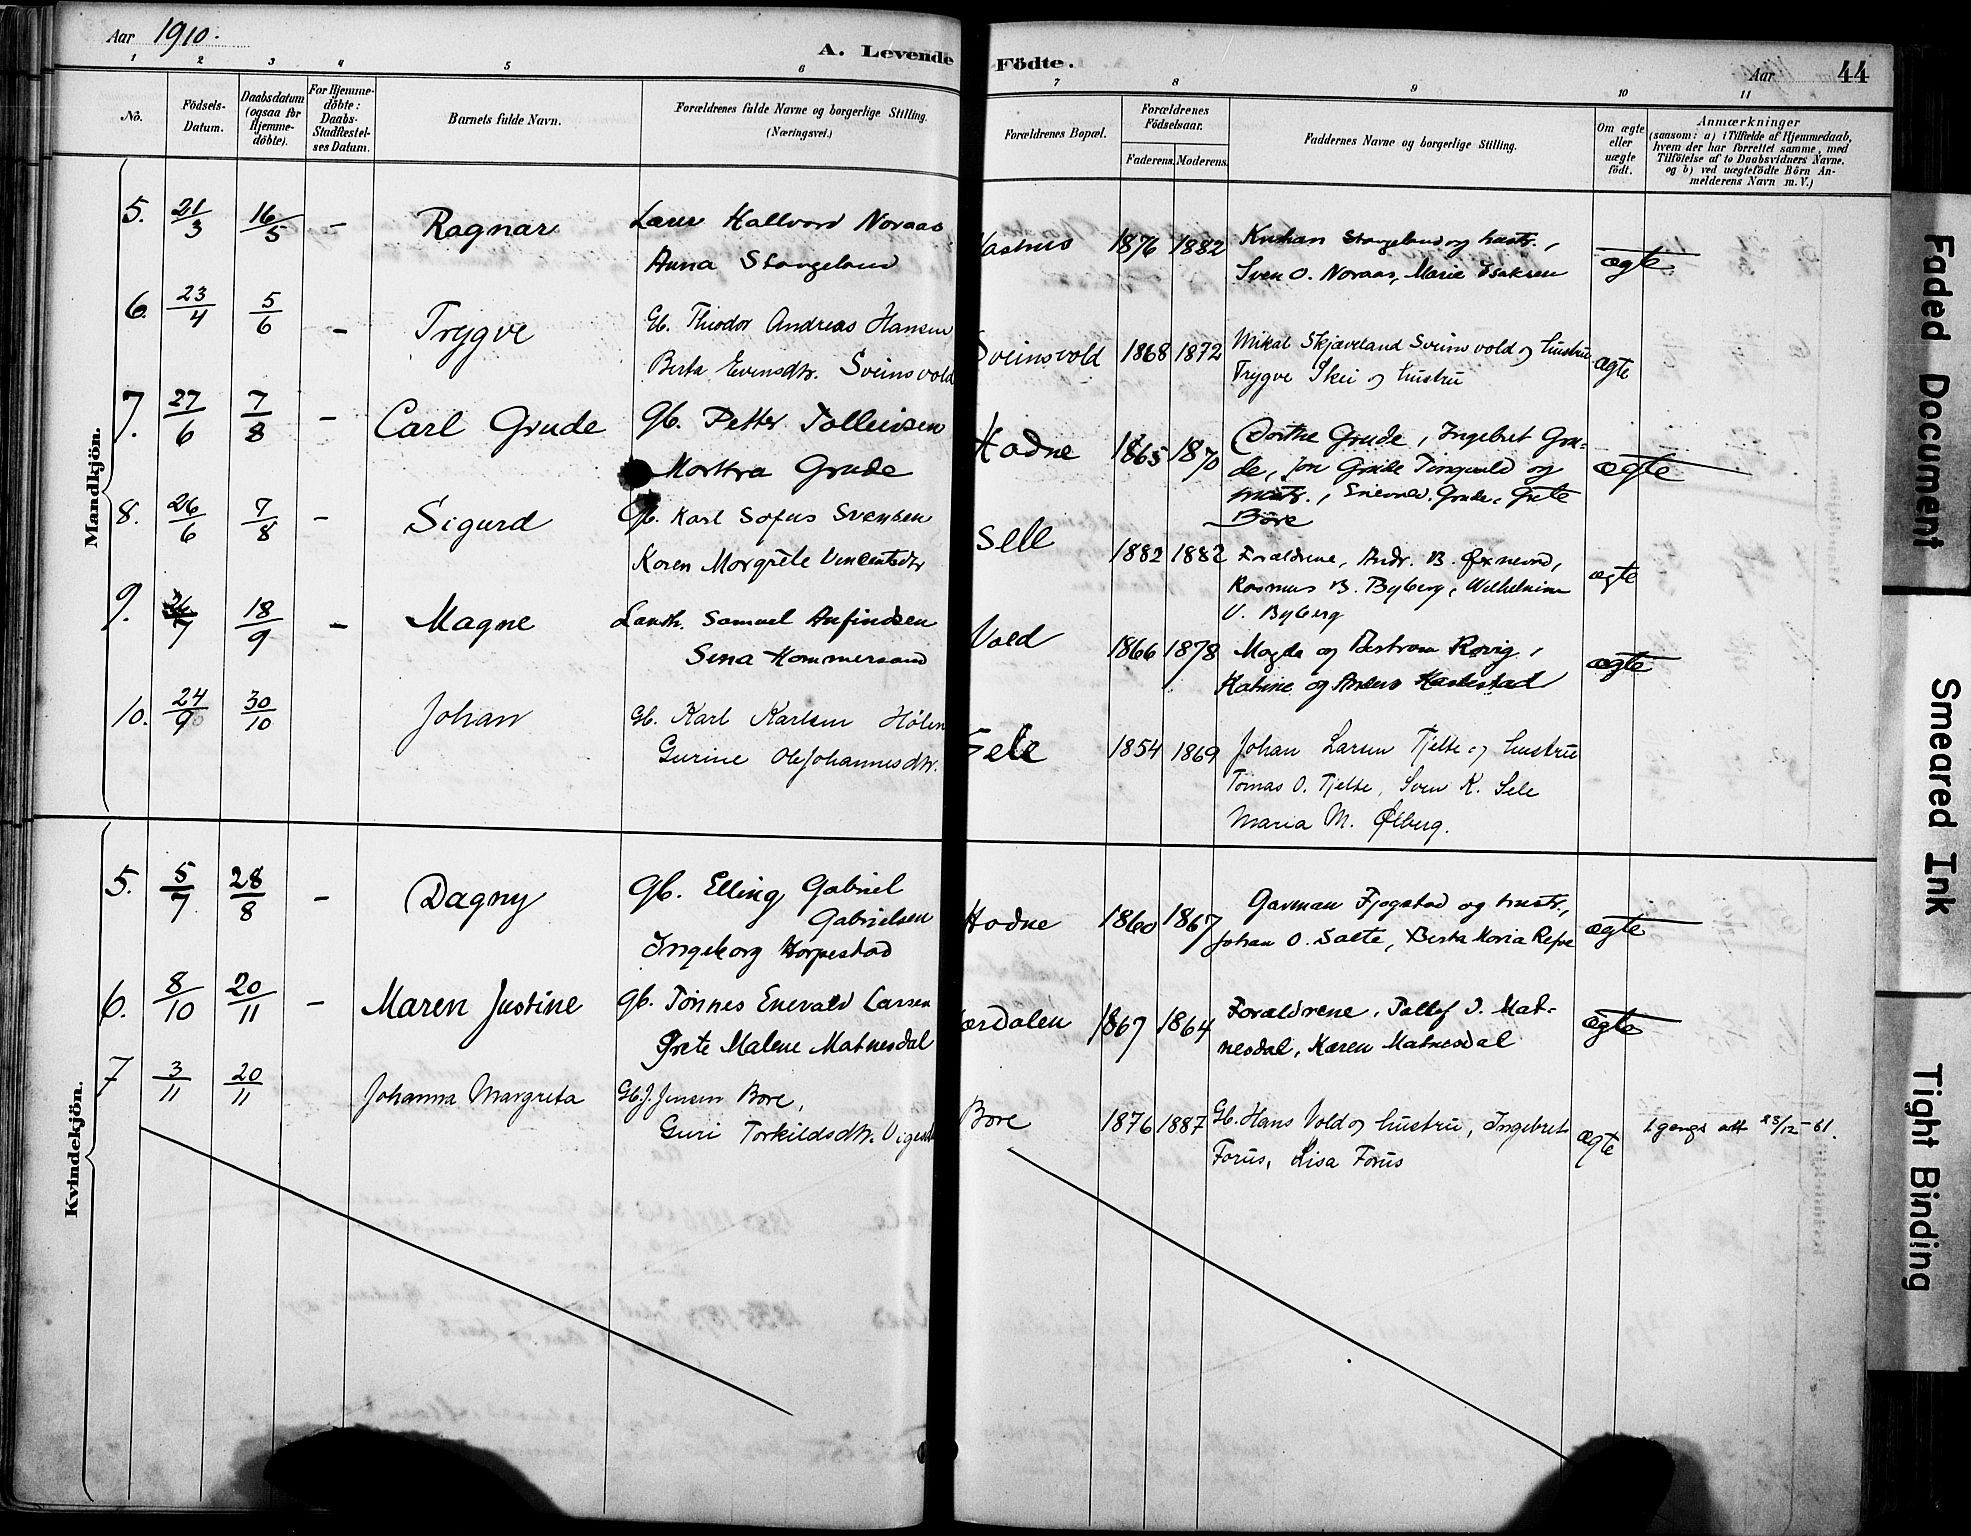 Aar 1910.
A. Levende Födte.
Aar 44
1 2 3 4 5 6 7 8 9 10 11
No.
Födsels-Datum.
Daabsdatum (ogsaa for Hjemme-döbte).
For Hjemme-döbte: Daabs-Stadfæstel-ses Datum.
Barnets fulde Navn.
Forældrenes fulde Navne og borgerlige Stilling.
(Næringsvei.)
Forældrenes Bopæl.
Forældrenes Födselsaar.
Faderens. Moderens.
Faddernes Navne og borgerlige Stilling.
Om ægte eller uægte födt.
Anmærkninger
(saasom: a) i Tilfælde af Hjemmedaab,
hvem der har forrettet samme, med
Tilföielse af to Daabsvidners Navne.
og b) ved uægtefödte Börn An-
melderens Navn m. V.)
Mandkjön.
5. 21/3 16/5 – Ragnar Lærer Hallvard Noraas 1876 1882 ægte
Anna Stangeland
Stangeland og hustr.,
Sven O. Noraas, Marie Isaksen
6. 23/4 5/6 – Trygve Gb. Theodor Andreas Hansen Sveinsvold 1868 1872 ægte
Berta Evensdtr. Sveinsvold
Mikal Skjæveland Sveinsvold og hustru
Trygve Skei og hustru
7. 27/6 7/8 – Carl Grude Gb. Petter Tolleivsen Hodne 1865 1870 ægte
Marttra Grude
Dorthe Grude, Ingebret Gru-
de, Jon Grude Tinguald og
hustr., Grude, Grete
Böre
8. 26/6 7/8 – Sigurd Gb. Karl Sofus Svensen Sele 1882 1882 ægte
Karen Margrete Vincentsdtr
Forældrene, Andr. B. Øxnevad,
Rasmus B. Byberg, Wilhelmine
V. Byberg
9. 26/7 18/9 – Magne Landh. Samuel Anfindsen Vold 1866 1878 ægte
Sina Hommersand
Magda og Bertram Røvig,
Katrine og Anders Haabestad
10. 24/9 30/10 Johan Gb. Karl Karlsen Hølen Sele 1854 1869
Gurine Ole Johannesdtr.
Johan Larsen Tjelte og hustru
Tomas O. Tjelte, Sven K. Sele
Maria M. Ølberg.
Kvindekjön.
5. 5/7 28/8 – Dagny Gb. Elling Gabriel Hodne 1860 1867 ægte
Gabrielsen
Ingeborg Horpestad
Garman Fjogstad og hustr.,
Johan O. Salte, Berta Maria Refve
6. 8/10 20/11 – Maren Justine Gb. Tönnes Enevald Larsen 1867 1864 ægte
Grete Malene Matnesdal
Forældrene, Tollef I. Mat-
nesdal, Karen Matnesdal
7 3/11 20/11 Johanna Margreta Gb. J. Jensen Bore, Bore 1876 1887 ægte
Guri Torkildsdtr.
Gb. Hans Vold og hustru, Ingebret
Forus, Lisa Forus
1 gangs att 23/12-61.
Faded Document
Smeared Ink
Tight Binding